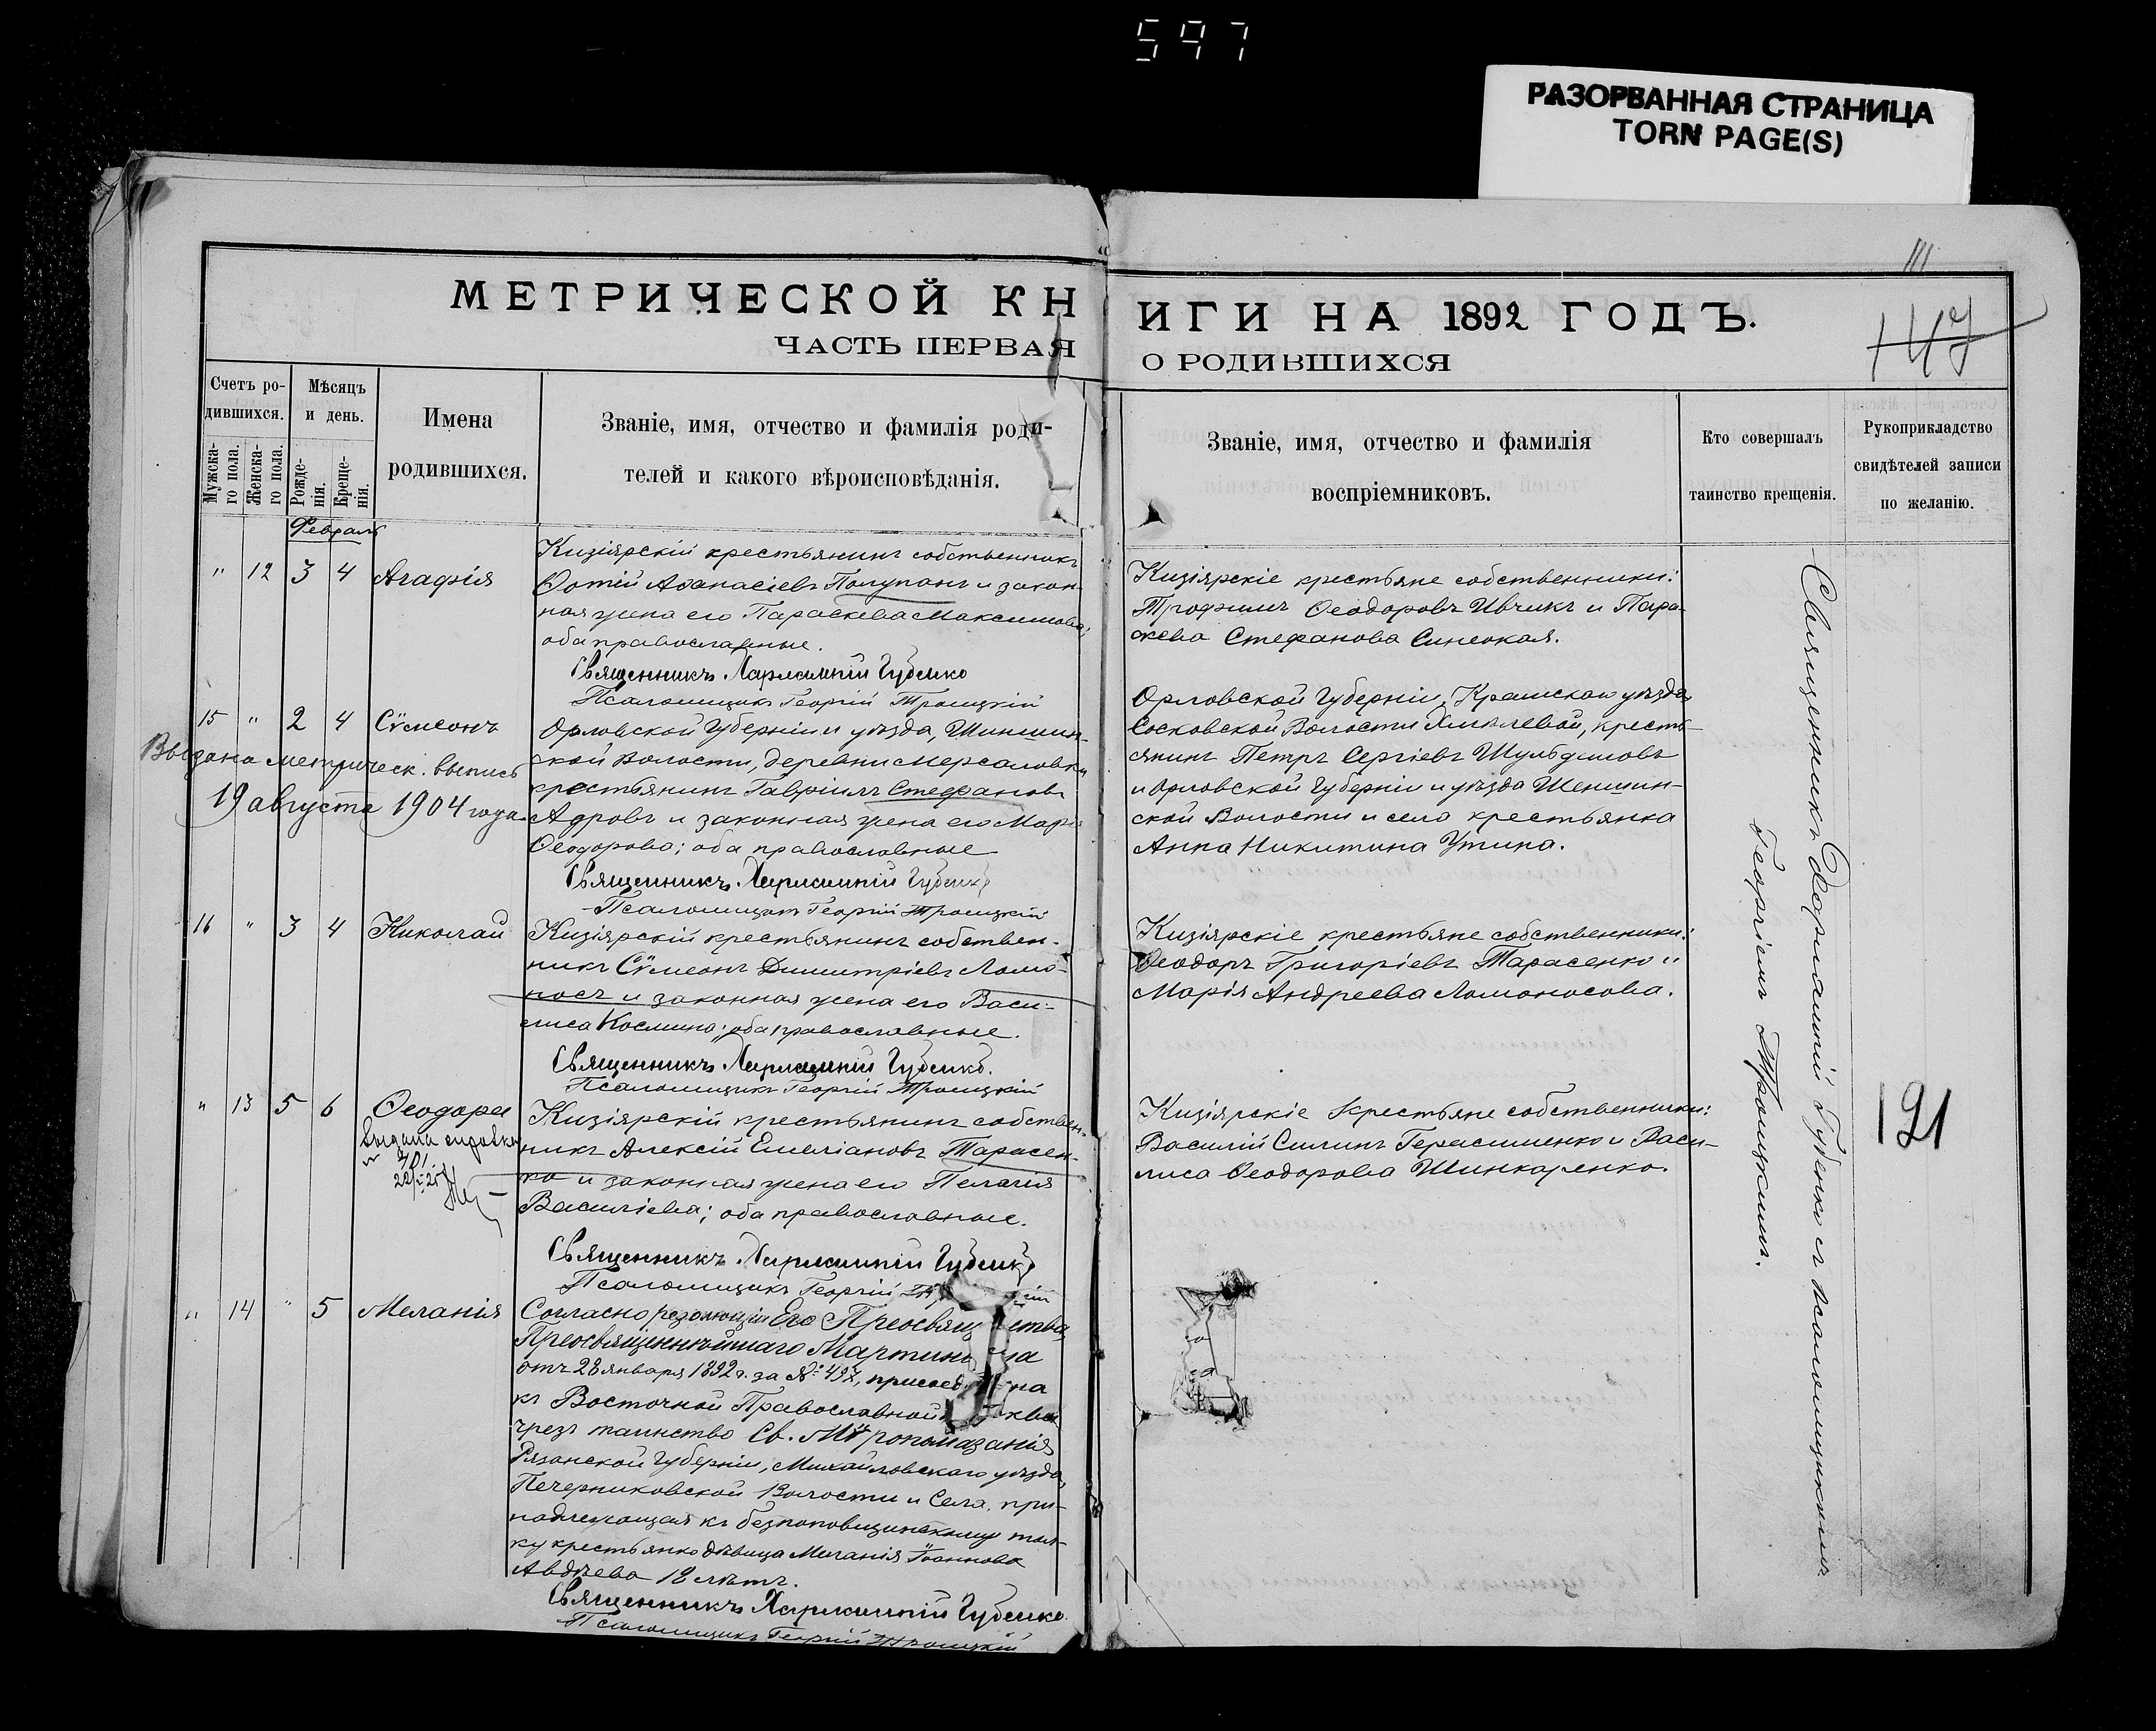 597
РАЗОРВАННАЯ СТРАНИЦА
TORN PAGE(S)
111
147
МЕТРИЧЕСКОЙ КН
ИГИ НА 1892 ГОДЪ.
ЧАСТЬ ПЕРВАЯ
О РОДИВШИХСЯ
Счетъ ро-
дившихся.
Мужска-
го пола.
Женска-
го пола.
Мѣсяцъ
и день.
Рожде-
нія.
Креще-
нія.
Имена
родившихся.
Званіе, имя, отчество и фамилія роди-
телей и какого вѣроисповѣданія.
Званіе, имя, отчество и фамилія
воспріемниковъ.
Кто совершалъ
таинство крещенія.
Рукоприкладство
свидѣтелей записи
по желанію.
Февраль
" 12 3 4 Агафія
Кизіярскій крестьянинъ собственникъ
Ѳотій Аѳанасіевъ Полупанъ и закон-
ная жена его Параскева Максимова;
оба православные.
Священникъ Харлампій Губенко
Псаломщикъ Георгій Троицкій
Кизіярскіе крестьяне собственники:
Трофимъ Ѳеодоровъ Ивчикъ и Пара-
скева Стефанова Синеокая.
15 " 2 4 Сѵмеонъ
Выдана метрическ. выпись
19 августа 1904 года.
Орловской Губерніи и уѣзда, Шиншин-
ской Волости, деревни Мерсаловки
крестьянинъ Гавріилъ Стефановъ
Адровъ и законная жена его Марія
Ѳеодорова; оба православные
Священникъ Харлампій Губенко
Псаломщикъ Георгій Троицкій
Орловской Губерніи, Крамскаго уѣзда,
Сосковской Волости Хмѣлевой, кресть-
янинъ Петръ Сергіевъ Шульдешовъ
и Орловской Губерніи и уѣзда Шеншин-
ской Волости и села крестьянка
Анна Никитина Утина.
16 " 3 4 Николай
Кизіярскій крестьянинъ собствен-
никъ Сѵмеонъ Димитріевъ Ломо-
носъ и законная жена его Васи-
лиса Космина; оба православные.
Священникъ Харлампій Губенко.
Псаломщикъ Георгій Троицкій
Кизіярскіе крестьяне собственники:
Ѳеодоръ Григоріевъ Тарасенко и
Марія Андреева Ломоносова.
" 13 5 6 Ѳеодора
Выдана справка
Кизіярскій крестьянинъ собствен-
никъ Алексій Емеліановъ Тарасен-
ко и законная жена его Пелагія
Василіева; оба православные.
Священникъ Харлампій Губенко
Псаломщикъ Георгій
Кизіярскіе крестьяне собственники:
Василій Силинъ Герасименко и Васи-
лиса Ѳеодорова Шинкаренко.
" 14 " 5 Меланія
Согласно резолюціи Его Преосвящ ства,
Преосвященнѣйшаго Мартині на
отъ 28 января 1892 г. за № 497, присоед на
къ Восточной Православной кви
чрезъ таинство Св. Мѵропомазанія
Рязанской Губерніи, Михайловскаго уѣзда,
Печерниковской Волости и Села, при-
надлежащая къ безпоповщинскому тол-
ку крестьянка дѣвица Меланія Іоаннова
Авдѣева 12 лѣтъ.
Священникъ Харлампій Губенко.
Псаломщикъ Георгій Троицкій
Священникъ Харлампій Губенко съ псаломщикомъ
Георгіемъ Троицкимъ.
121